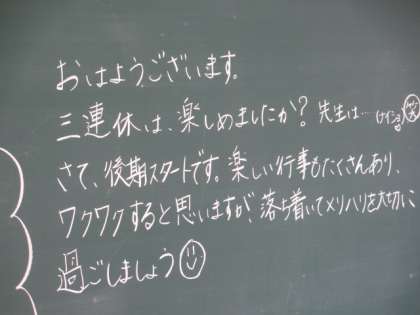 おはようございます。
三連休は、楽しめましたか?先生は…
さて、後期スタートです。楽しい行事もたくさんあり、
ワクワクすると思いますが、落ち着いてメリハリを大切に
過ごしましょう